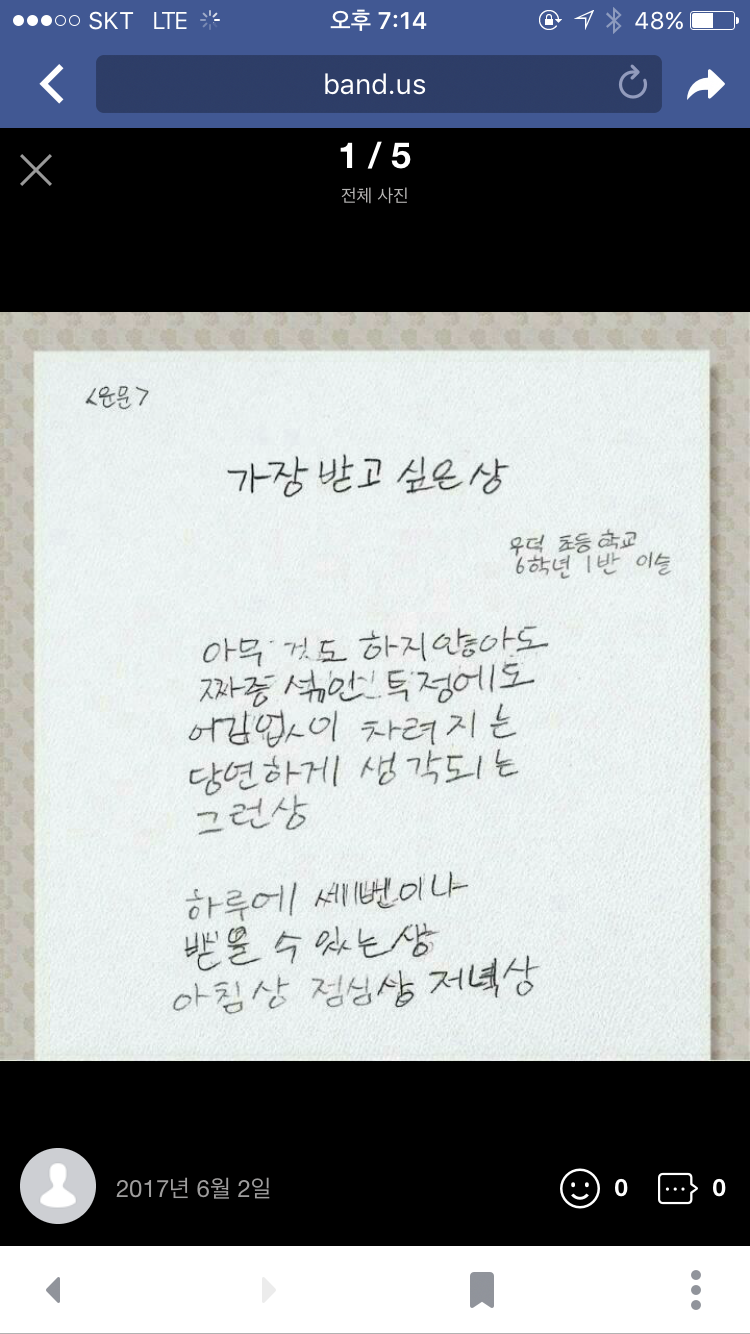 SKT LTE 오후 7:14 48%
band.us
1 / 5
전체 사진
<운문>
가장 받고 싶은 상
우덕 초등학교
6학년 1반 이슬
아무 것도 하지않아도
짜증 섞인 투정에도
어김없이 차려지는
당연하게 생각되는
그런상
하루에 세번이나
받을 수 있는 상
아침상 점심상 저녁상
2017년 6월 2일
0 0